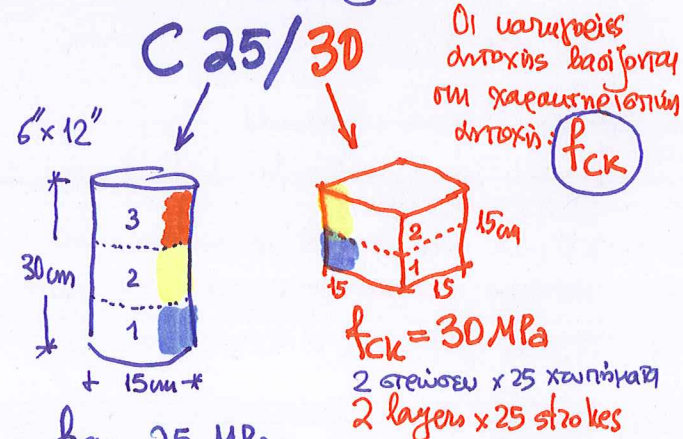 C 25/30
Οι κατηγορίες
αντοχής βασίζονται
στη χαρακτηριστική
αντοχή: fck
6"x 12"
3
2
1
30cm
15cm
2
1
15cm
15
15
fck = 30 MPa
2 στρώσεων x 25 χτυπήματα
2 layers x 25 strokes
25 MPa